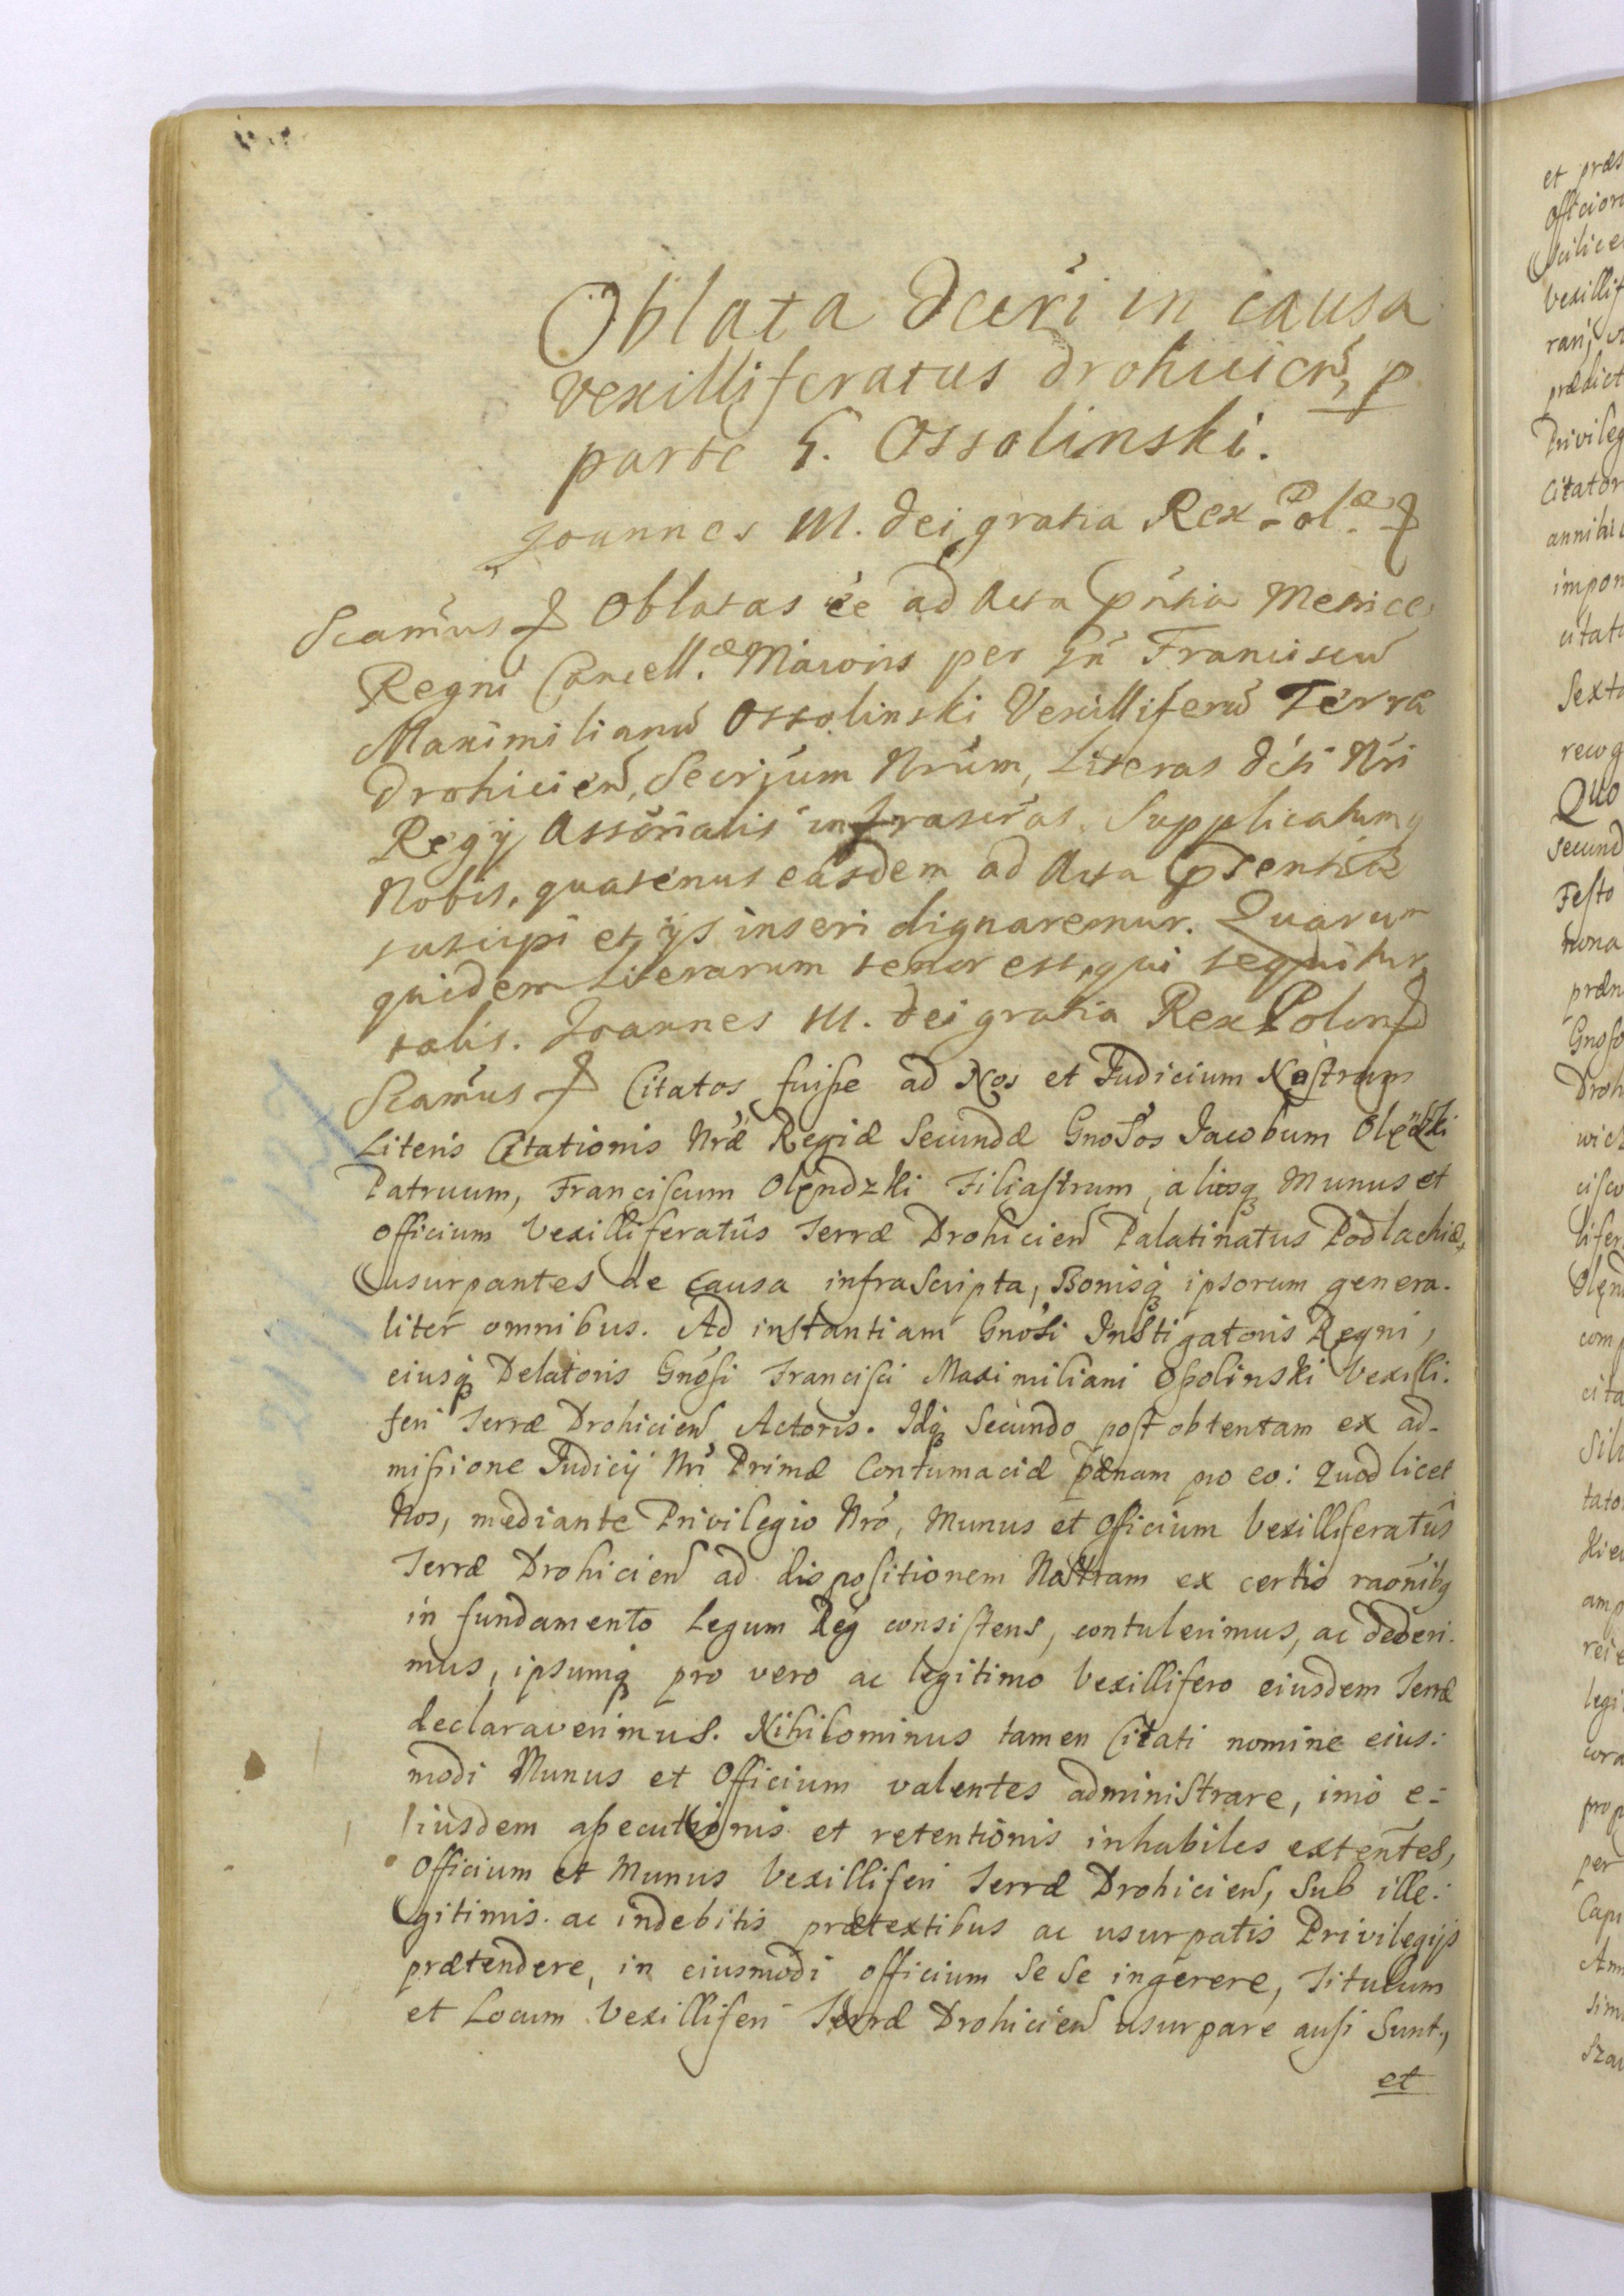 Oblata Dcŕi in causa
Vexilliferatus Drohicień, p
parte G. Ossolinski.
Joannes III. Dei gratia Rex Polæ
Scamús Oblatas ée ad Acta pńtia Metrices
Regni Cancellæ Maioris per Gń Franciscū
Maximilianū Ossolinski Vexilliferū Terræ
Drohicień, Secrijum Nrúm, Literas Dčti Nři
Regÿ Assórialis infrascŕas. Supplicatumq
Nobis, quatenus easdem ad Acta psentia
suscipi et ijs inseri dignaremur. Quarum
quidem Literarum tenor est, qui sequitur
talis. Joannes III. Dei gratia Rex Polon
Scamús Citatos fuiſse ad Nos et Judicium Noſtrum
Literis Citationis Nŕæ Regiæ Secundæ Gnosós Jacobum Olędzki
Patruum, Franciſcum Olęndzki Filiaſtrum, aliosq Munus et
officium Vexilliferatûs Terræ Drohicień Palatinatus Podlachiæ,
usurpantes de causa infraScripta, Bonisq ipsorum genera-
liter omnibus. Ad instantiam Gnósi Instigatoris Regni,
eiusq Delatoris Gnósi Franciſci Maximiliani Oſsolinski Vexilli-
feri Terræ Drohicień Actoris. Idq Secundo poſt obtentam ex ad-
miſsione Judicÿ Nŕi Primæ Contumaciæ pænam pro eo: Quod licet
Nos, mediante Privilegio Nró, Munus et Officium Vexilliferatûs
Terræ Drohicień ad dispoſitionem Nostram ex certis raoníbq
in fundamento Legum Reg consiſtens, contulerimus, ac dederi-
mus, ipsumq pro vero ac legitimo Vexillifero eiusdem Terræ
declaraverimus. Nihilominus tamen Citati nomine eius:
modi Munus et Officium valentes adminiStrare, imo e=
iusdem aſsecutionis et retentionis inhabiles exteñtes,
Officium et Munus Vexilliferi Terræ Drohicień, Sub ille:
gitimis ac indebitis prætextibus ac usurpatis Privilegijs
prætendere, in eiusmodi officium SeSe ingerere, Titulum
et Locum Vexilliferi Terræ Drohicień usurpare auſi Sunt,
et